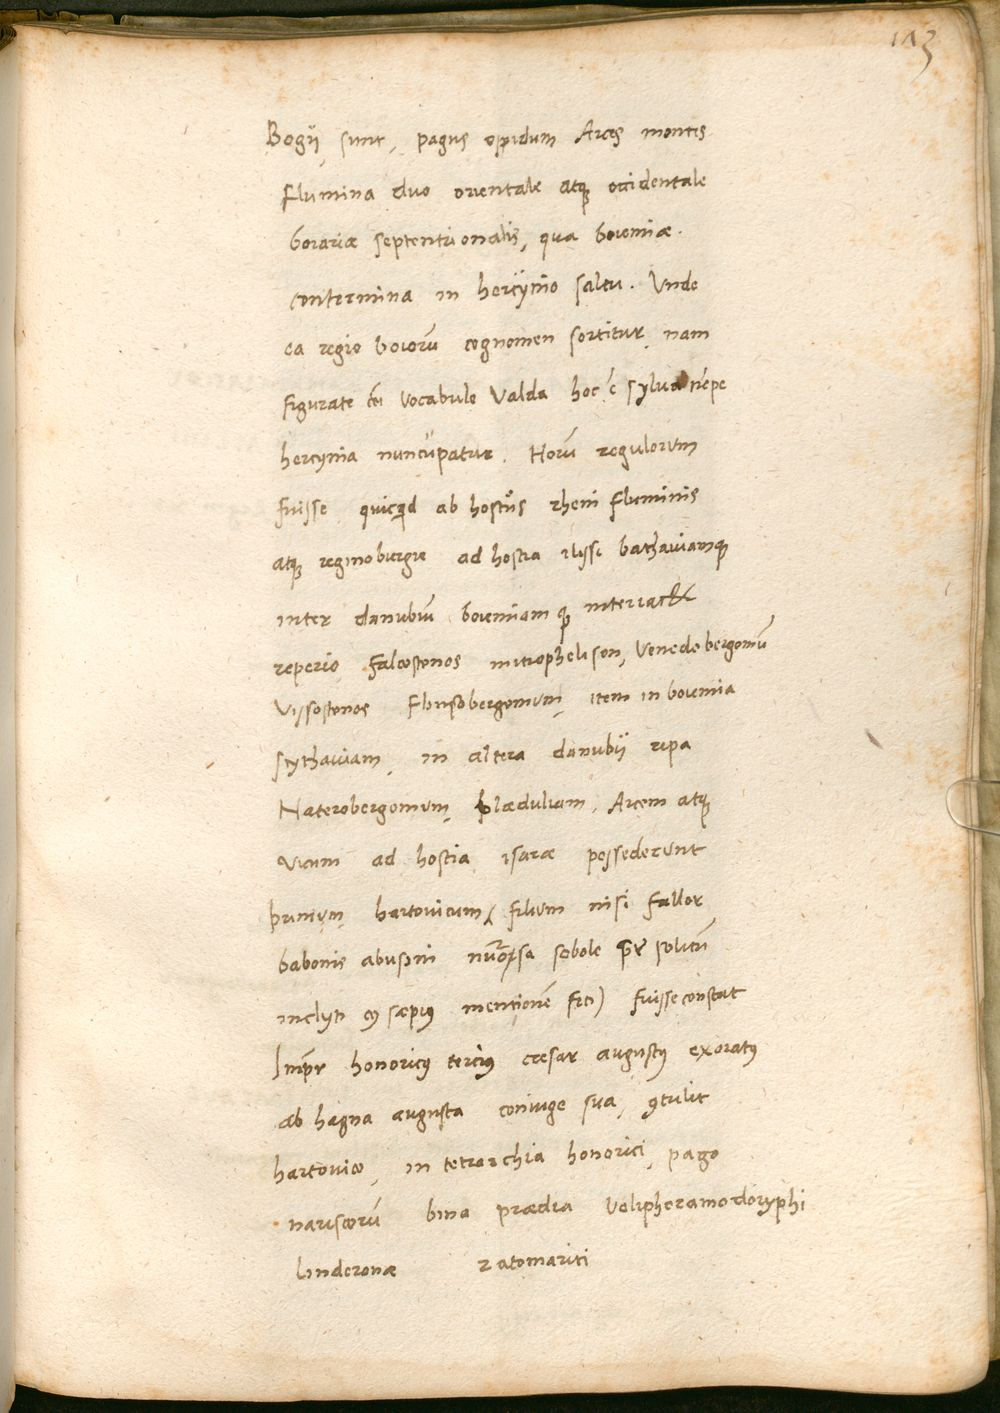 113
Bogij sunt, pagus oppidum Arces montis
flumina duo orientale atq; occidentale
boiariæ septentrionalis, qua boiemiæ.
contermina in hercÿnio saltu. Unde
ea regio boiorū cognomen sortitur, nam
figurate vocabulo Valda hoc ē sylva nēpe
hercynia nuncupatur. Horū regulorum
fuisse quicqd ab hostiis rheni fluminis
atq; reginoburgie ad hostia ilissi bathaviamq;
inter danubiū boiemiamq;
reperio falcostonos mitrophelison, Venedobergomū
Vissostonos flinsobergomum, item in boiemia
scythaviam, in altera danubij ripa
Naterobergomum, blædulium, Arcem atq;
vicum ad hostia isaræ possederunt
primum hartovicum (filium nisi fallor
babonis abusini sobole
inclyti cuius sæpius mentionē feci) fuisse constat
Impr honoricus tercius cæsar augustus exoratus
ab hagna augusta coniuge sua, 9tulit
hartovico, in tetrarchia honorici, pago
nariscorū bina prædia Volipheramodoryphi
linderonæ ratomariti